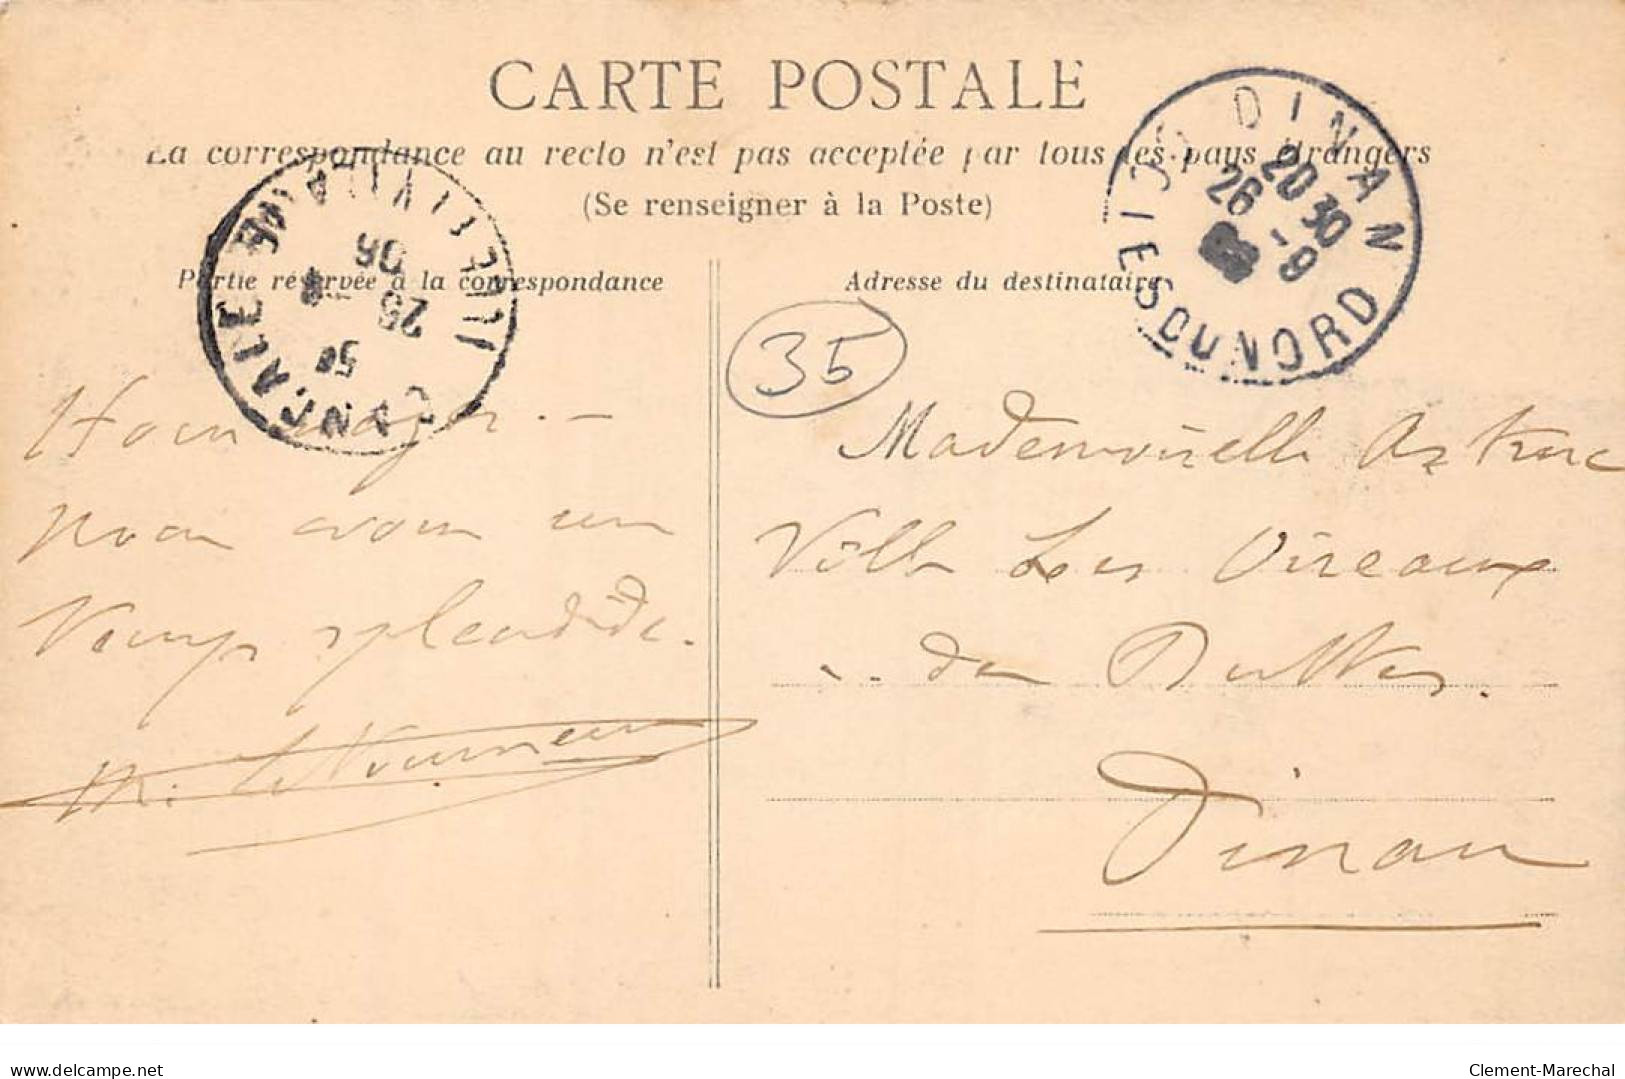 CARTE POSTALE
La correspondance au recto n'est pas acceptée par tous les pays étrangers
(Se renseigner à la Poste)
Partie réservée à la correspondance
Adresse du destinataire
CANCALE
ILLE ET VILAINE
25
06
DINAN
20 30
26 - 9
CÔTES DU NORD
35
Hommages. —
nous avons un
temps splendide.
Mademoiselle Astruc
Villa Les Oiseaux
des Buttes.
Dinan
delcampe.net
Clement-Marechal